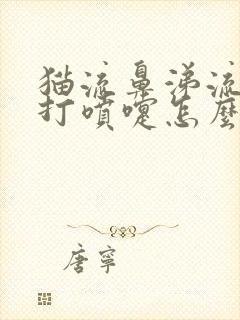 猫流鼻涕流
打噴嚏怎麼
唐寧